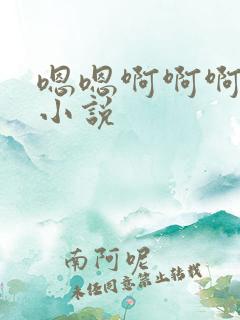 嗯嗯啊啊啊
小說
南阿呢
未经同意禁止转载